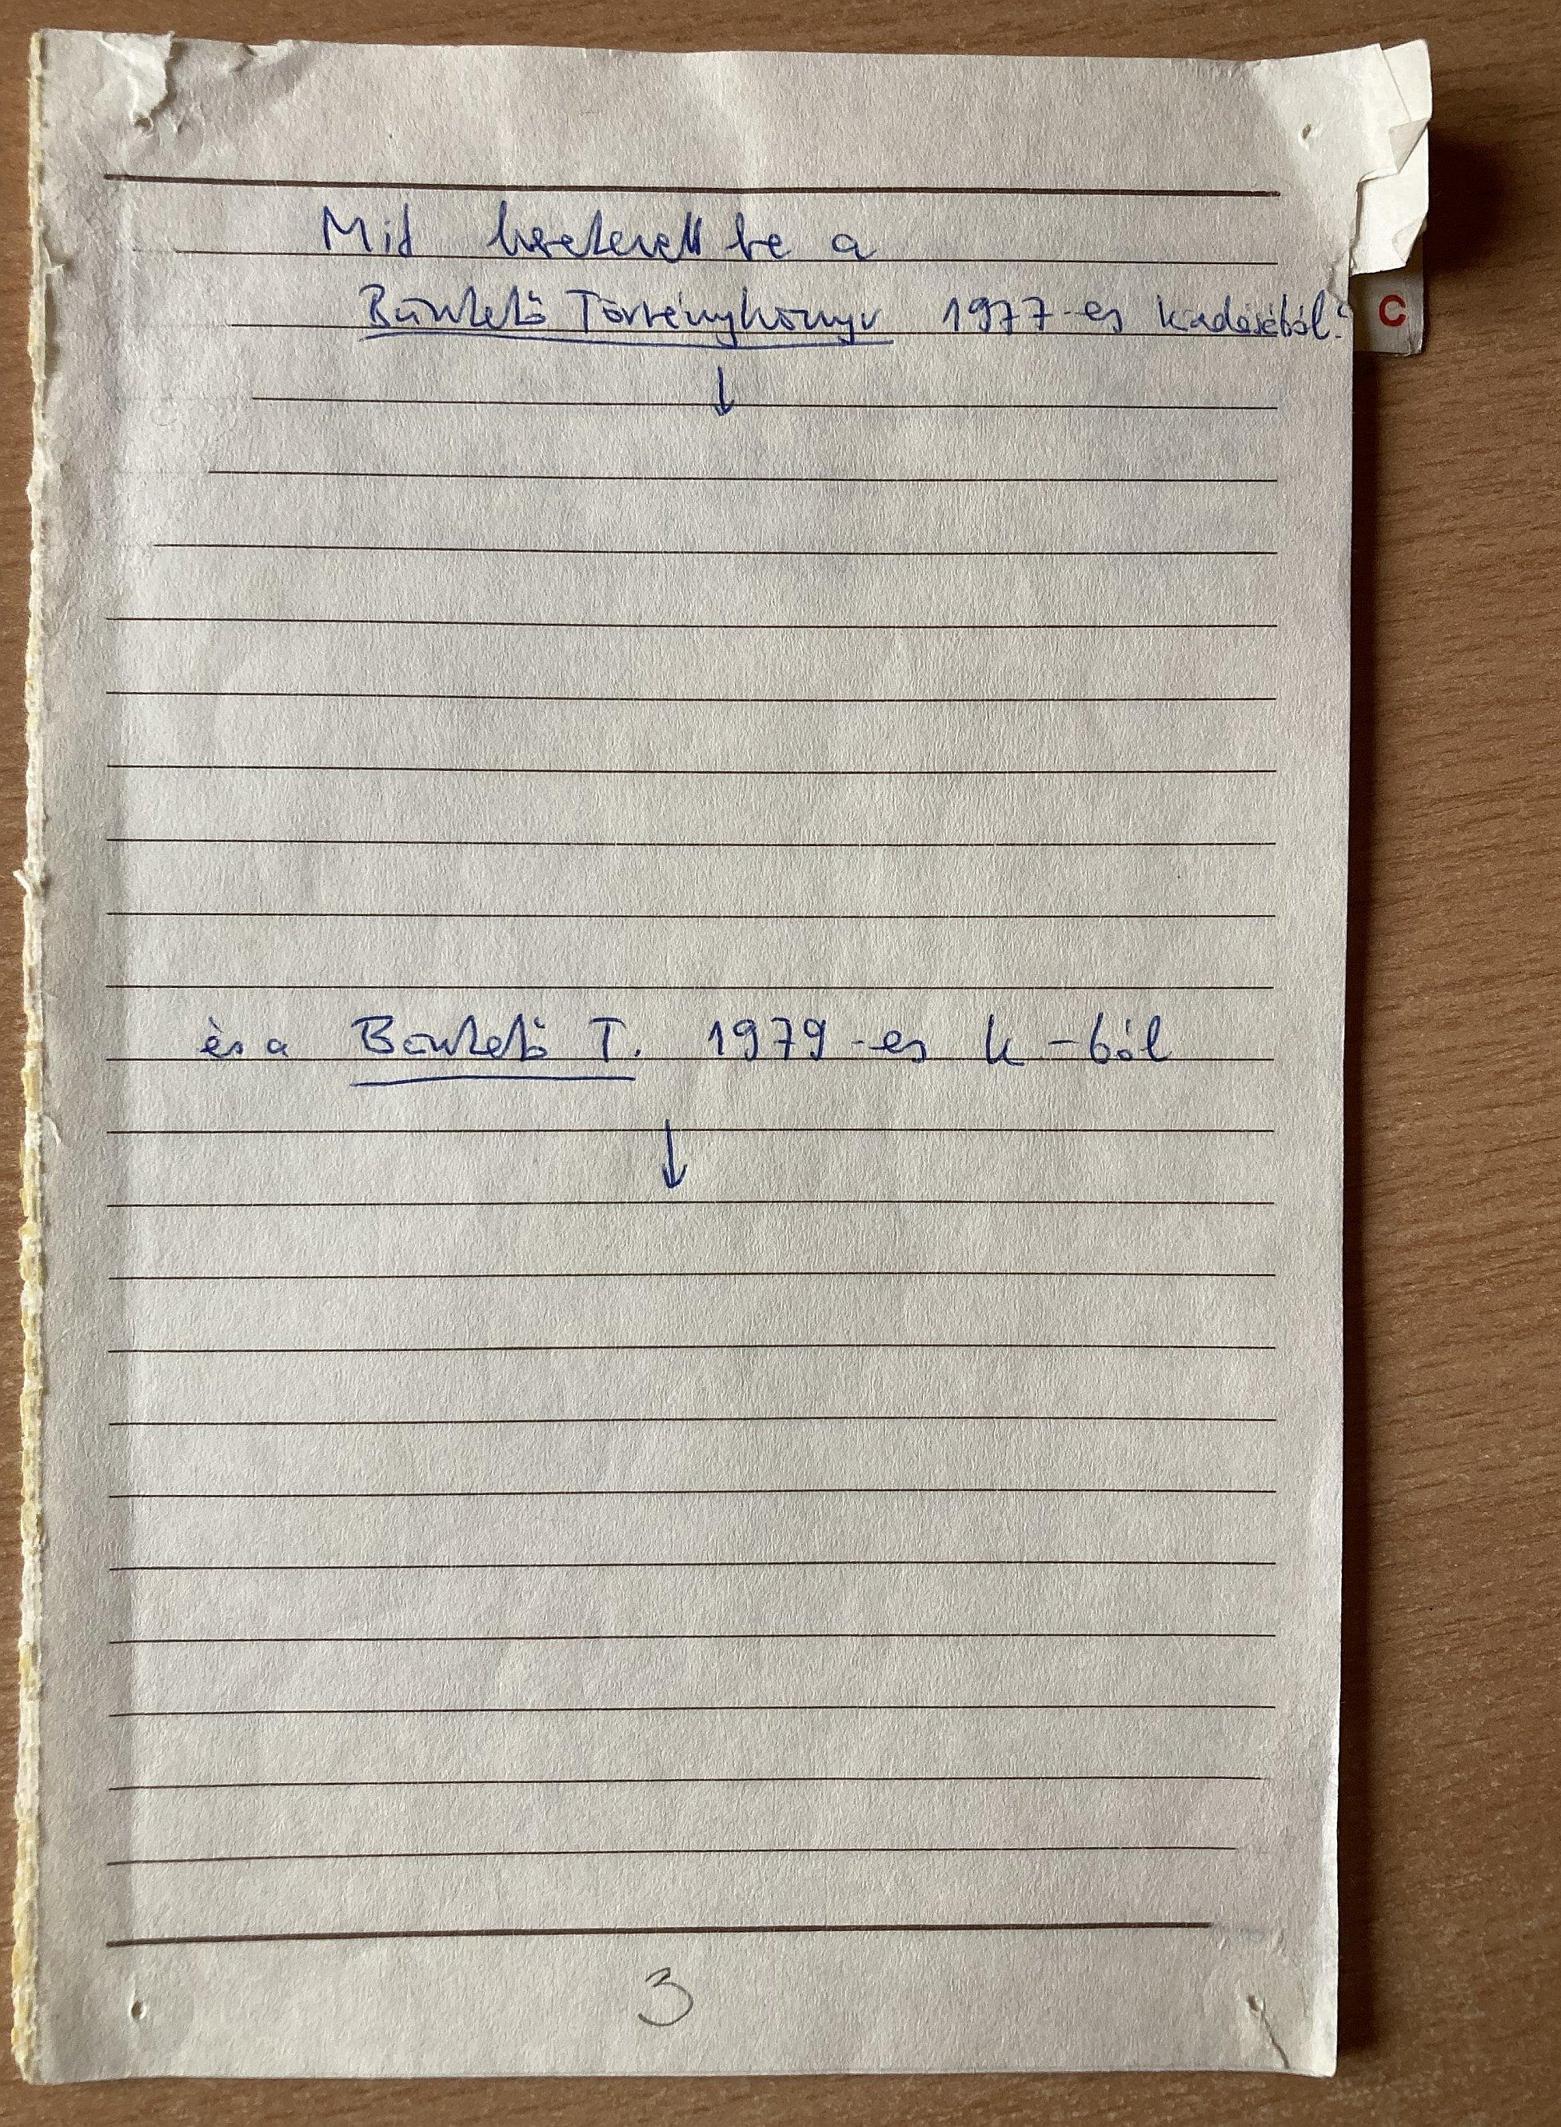 Mit be a
Büntető Törvénykönyv 1977-es kiadásából?
C
↓
és a Büntető T. 1979-es k-ból
↓
3